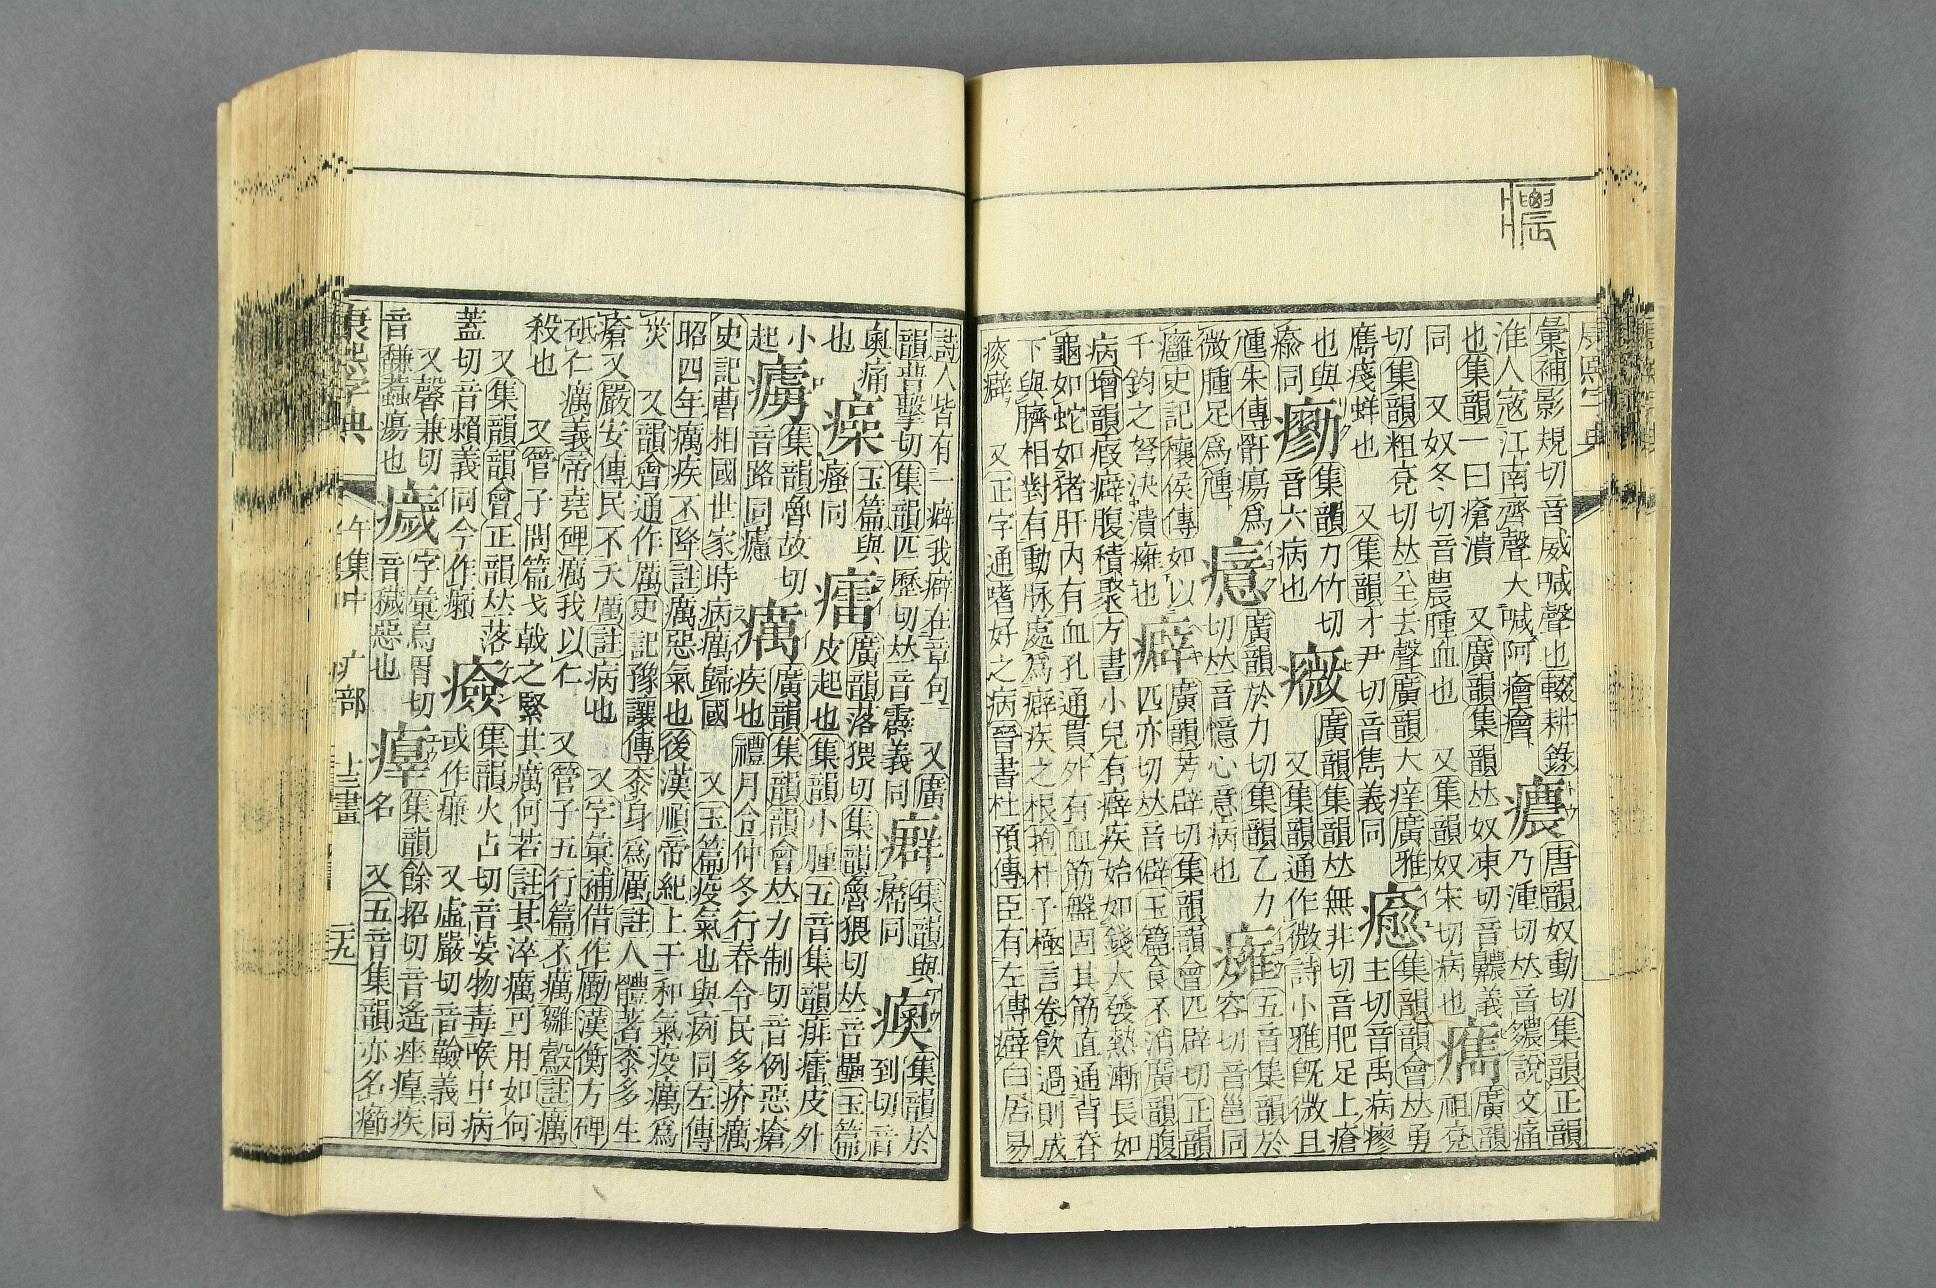 康熙字典
彙補影規切音威喊聲也輟耕錄 唐韻奴動切集韻正韻
淮人寇江南齊聲大喊阿癐癐 癑 乃湩切𠀤音繷說文痛
也集韻一曰瘡潰 又廣韻集韻𠀤奴凍切音齈義 廣韻
同 又奴冬切音農腫血也 又集韻奴宋切病也 徂兗
切集韻粗兗切𠀤全去聲廣韻大痒廣雅 癒 集韻韻會𠀤勇
痠蛘也 又集韻才尹切音雋義同 主切音禹病瘳
也與 集韻力竹切 癓 廣韻集韻𠀤無非切音肥足上瘡
瘉同 音六病也 又集韻通作微詩小雅旣微且
尰朱傳骭瘍爲 癔 廣韻於力切集韻乙力 癕 五音集韻於
微腫足爲尰 切𠀤音憶心意病也 容切音邕同
癰史記穰侯傳如以 癖 廣韻芳辟切集韻韻會匹辟切正韻
千鈞之弩決潰癰也 匹亦切𠀤音僻玉篇食不消廣韻腹
病增韻瘕癖腹積聚方書小兒有癖疾始如錢大發熱漸長如
龜如蛇如豬肝內有血孔通貫外有血筋盤固其筋直通背脊
下與臍相對有動脉處爲癖疾之根抱朴子極言卷飮過則成
痰癖 又正字通嗜好之病晉書杜預傳臣有左傳癖白居易
詩人皆有一癖我癖在章句 又廣 集韻與 集韻於
韻普擊切集韻匹歷切𠀤音霹義同 同 到切音
奧痛 玉篇與 癗 廣韻落猥切集韻魯猥切𠀤音壘玉篇
也 瘙同 皮起也集韻小腫五音集韻痱癗皮外
小 集韻魯故切 癘 廣韻集韻韻會𠀤力制切音例惡瘡
起 音路同 疾也禮月令仲冬行春令民多疥癘
史記曹相國世家時病癘歸國 又玉篇疫氣也與㾐同左傳
昭四年癘疾不降註癘惡氣也後漢順帝紀上干和氣疫癘爲
災 又韻會通作厲史記豫讓傳桼身爲厲註人體著桼多生
瘡又嚴安傳民不夭厲註病也 又字彙補借作勵漢衡方碑
砥仁癘義帝堯碑癘我以仁 又管子五行篇不癘雛鷇註癘
殺也 又管子問篇戈戟之緊其癘何若註其淬癘可用如何
又集韻韻會正韻𠀤落 集韻火占切音 物毒喉中病
蓋切音賴義同今作癩 或作 又虛嚴切音 義同
又馨兼切 字彙烏胃切 集韻餘招切音遙痤 疾
音馦蠚瘍也 音穢惡也 名 又五音集韻亦名癤
康熙字典 午集中 疒部 十三畫 二九